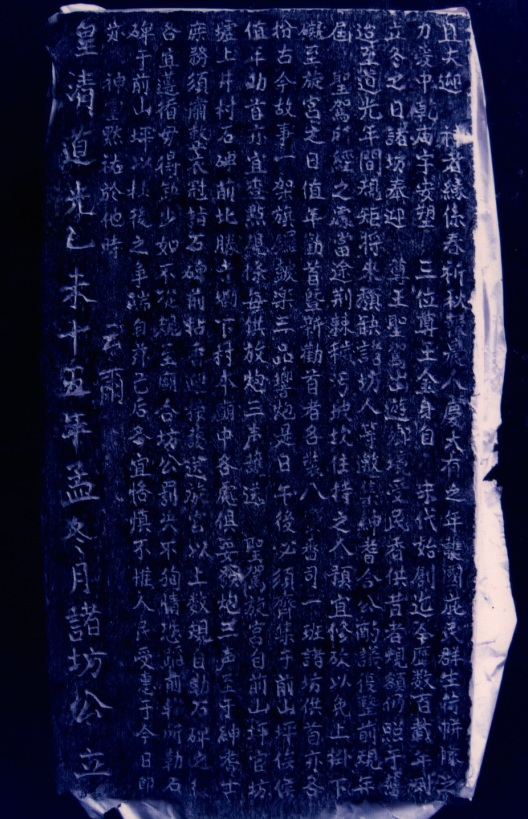 且夫迎 神者緣係春祈秋 人慶大有之年 國庇民群生荷帡幪之
力爰中 廟宇安塑 三位尊王金身自 宋代始創迄今歷数百載年例
立冬之日諸坊恭迎 尊王聖駕出遊 境受民香供昔者規額仍照于舊
迨至道光年間規矩將來頹缺諸坊人等邀 紳耆合公酌議復整前規年
屆 聖駕所經之處當途荊棘穢污坳坎住持之人預宜修砍以免上掛下
礙至旋宮之日值年勸首暨新勸首者各裝八 一班諸坊供首亦各
扮古今故事一架旗鑼鼓樂三品響炮是日午後必須齊集于前山坪伺候
值年勸首亦宜查點儀樣每供放炮三声 送 聖駕旋宮自前山坪官坊
墟上井村石碑前北勝 下村本廟中各處俱要响炮三声至于紳耆士
庶務須肅整衣冠 石碑前 迎 送旋宮以上数規自勒石碑之後
各宜遵循毋得缺少如不從規 闔合坊公罰决不徇情恐 前 所勒石
碑于前山坪以杜後之爭端自茲已后各宜恪慎不惟人民受惠于今日即
神 默祐於他時 云爾
皇清道光乙未十五年孟冬月諸坊公 立